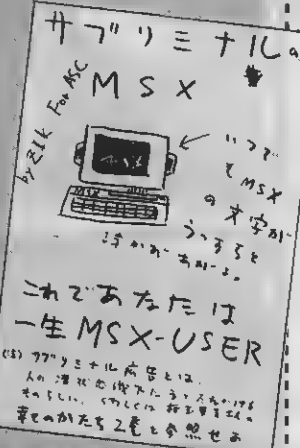 サブリミナルの
MSX
by Zlk For ASC
いつで
もMSX
の文字が
うっすらと
浮かびあがる。
MSX
これであなたは
一生MSX-USER
(注)サブリミナル広告とは、
人の潜在意識にうったえかける
ものらしい。くわしくは
幸せのかたち2巻を参照せよ